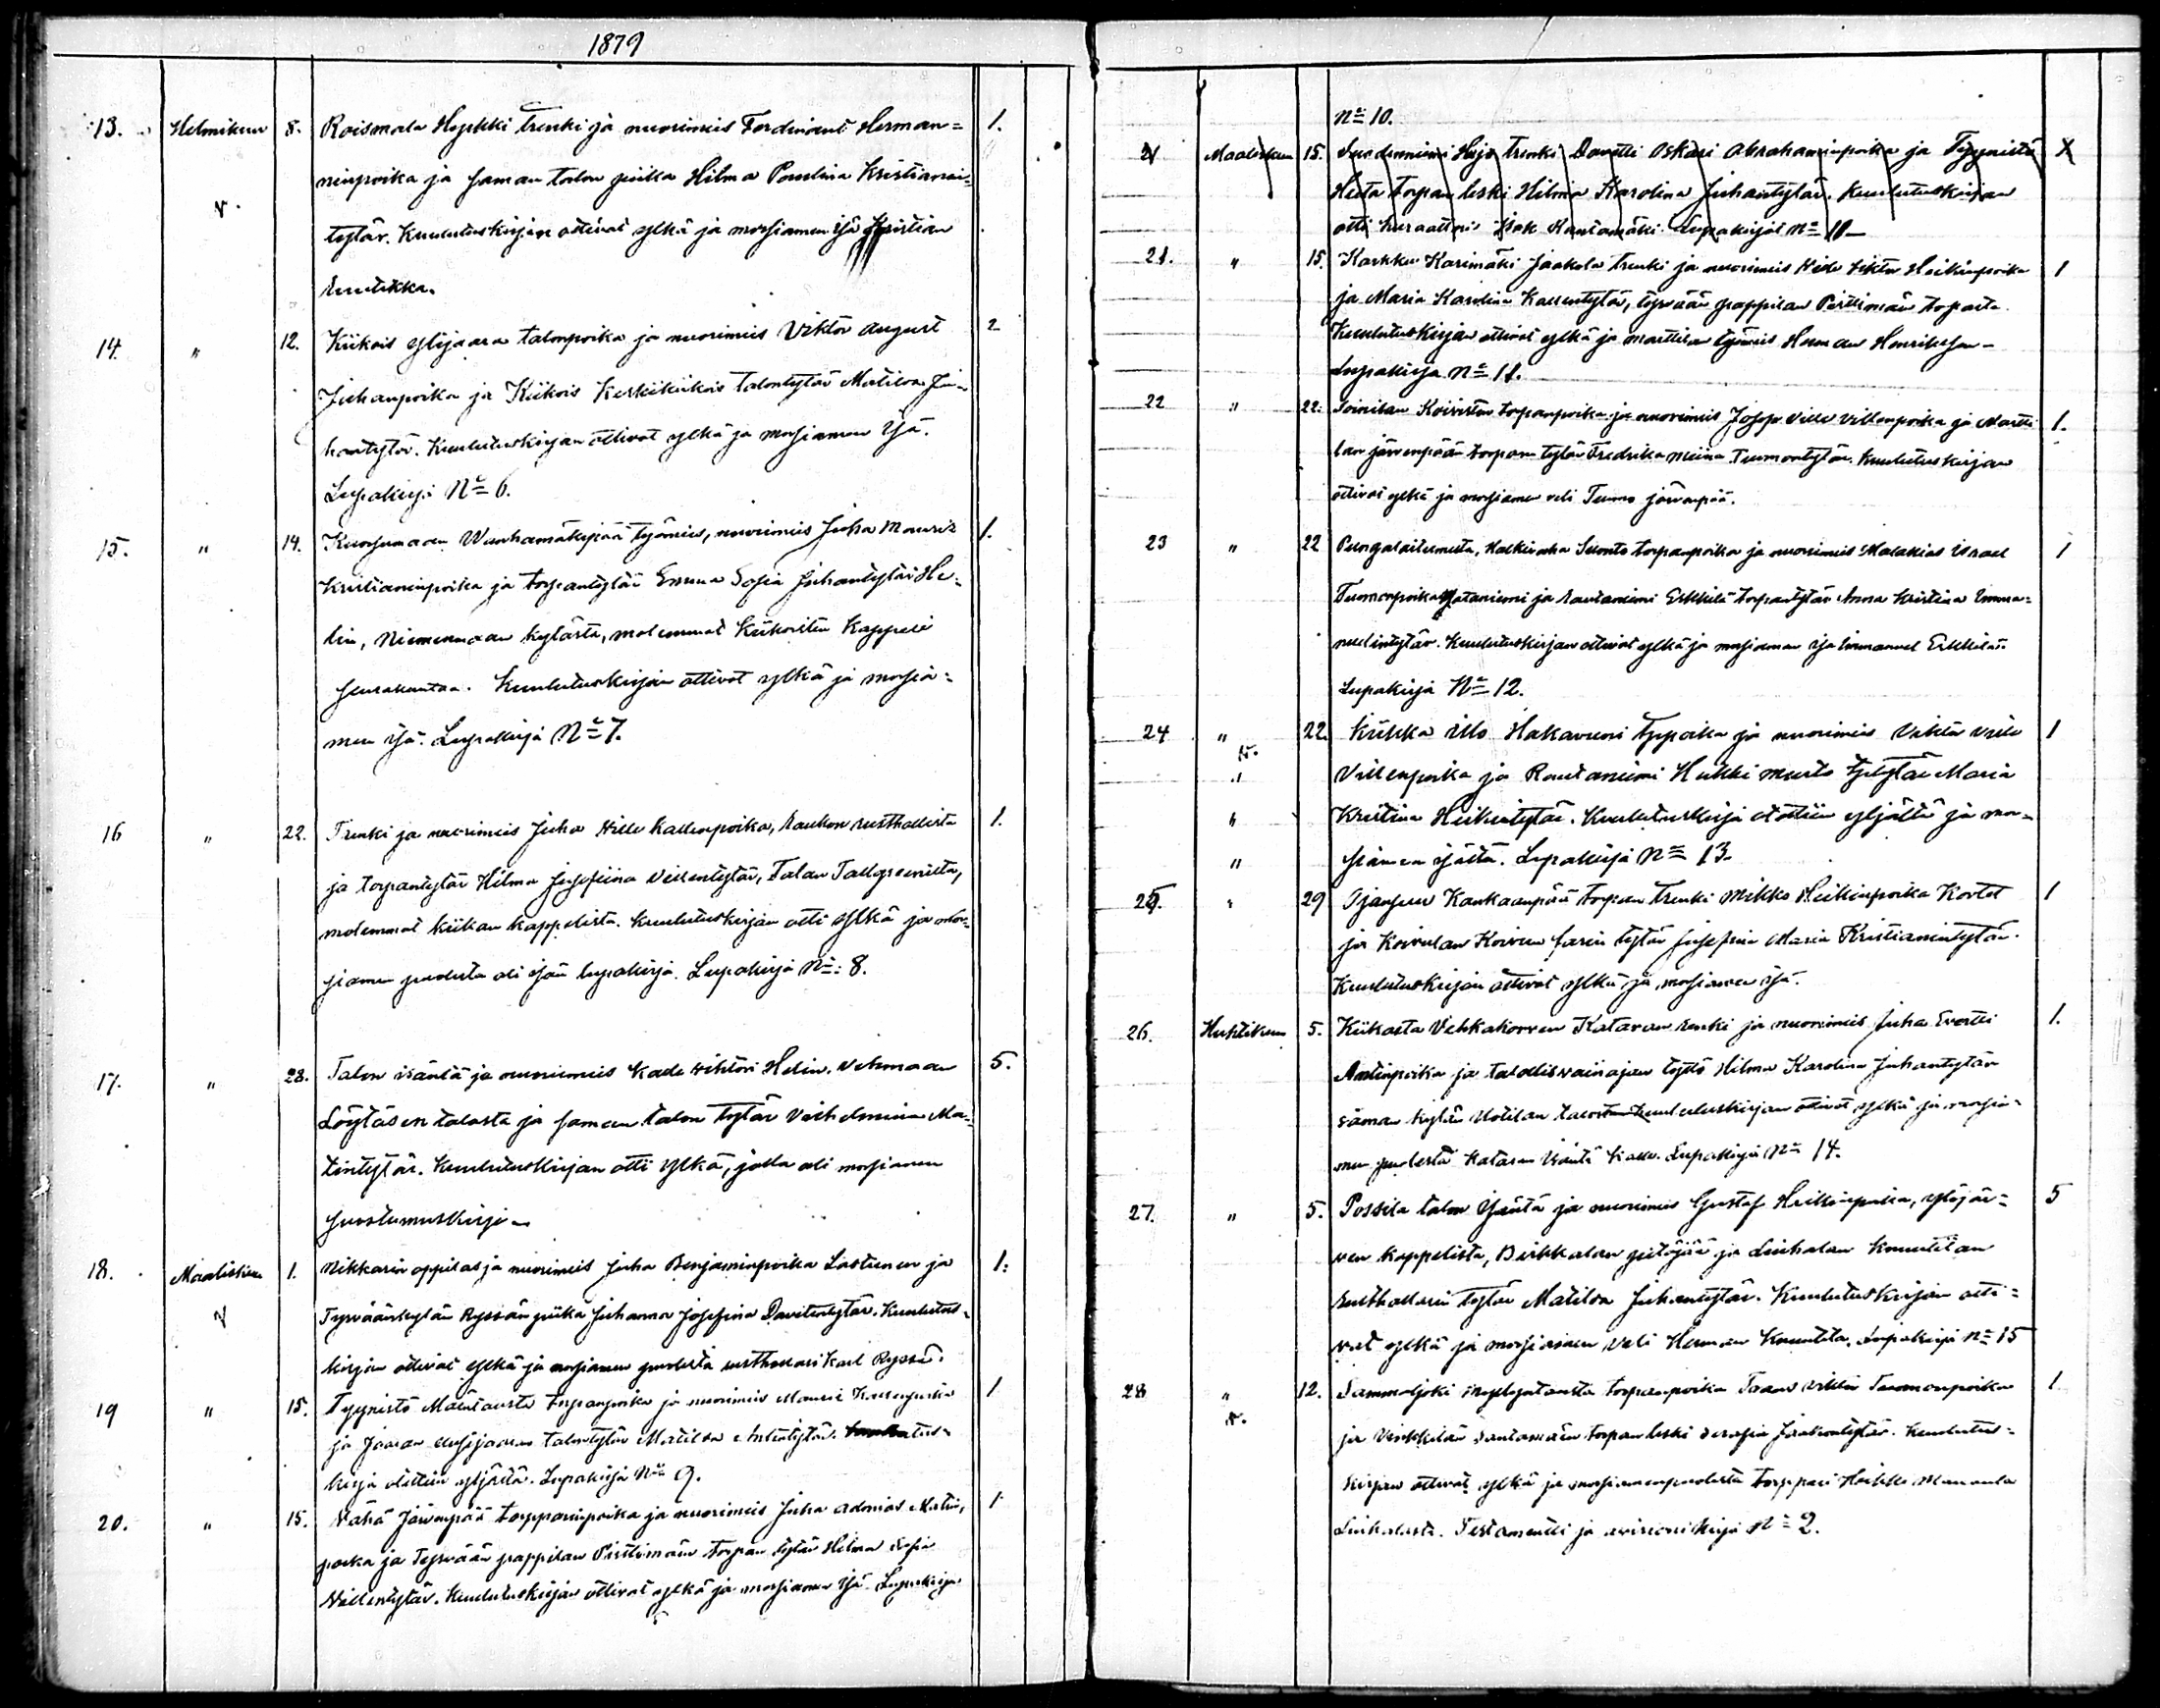 1879
13. Helmikuu 8. Roismala Heikki trenki ja nuorimies Ferdinant Herman= 1.
ninpoika ja saman talon piika Hilma Paulina Kristianin
tytär. Kuulutuskirjan ottivat ylkä ja morsiamen isä Kristian
14. " 12. Kiikois Ylijaara talonpoika ja nuorimies Viktor August 2
Juhanpoika ja Kiikois Keskikiikois talontytär Matilda Ju-
hantytär. Kuulutuskirjan ottivat ylkä ja morsiamen isä.
Lupakirja No 6.
15. " 14. työmies, nuorimies Juha Mauriz 1.
Kristianinpoika ja torpantytär Emma Sofia Juhantytär He-
lin, Niemenmaan kylästä, molemmat Kiikoisten Kappeli
seurakuntaa. Kuulutuskirjan ottivat ylkä ja morsia=
men isä. Lupakirja No 7.
16 " 22. Trenki ja nuorimies Juha Ville Kallenpoika, Raukon rusthollista 1.
ja torpantytär Hilma Josefiina Villentytär, Talan Tallgrenilta,
molemmat Kiikan kappelista. Kuulutuskirjan otti ylkä ja mor-
siamen puolesta oli isän lupakirja. Lupakirja No: 8.
17. " 28. Talon isäntä ja nuorimies Kalle Vihtori Helin, Vehmaan 5.
Löytäsen talosta ja saman talon tytär Vilhelmiina Ma-
tintytär. Kuulutuskirjan otti ylkä, jolla oli morsiamen
suostumuskirja
18. Maaliskuu 1. Nikkarin oppilas ja nuorimies Juha Benjaminpoika Lastunen ja 1.
Tyrväänkylän Ryssän piika Juhanna Josefina Davitintytär. Kuulutus-
kirjan ottivat ylkä ja morsiamen puolesta rusthollari Karl Ryssä.
19 " 15. Tyynistö torpanpoika ja nuorimies Mauri Kallenpoika 1
ja talontytär Matilda Antintytär.
kirja otettiin yljältä. Lupakirja No 9.
20. " 15. Vähä Järvenpää torpparinpoika ja nuorimies Juha Adonias Matin, 1
poika ja Tyrvään pappilan Pirttimäen torpan tytär Hilma Sofia
Villentytär. Kuulutuskirjan ottivat ylkä ja morsiamen isä. Lupakirja
No 10.
21 Maaliskuu 15. trenki Davetti Oskari Abrahaminpoika ja Tyynistä X
torpan leski Hilma Karolina Juhantytär. Kuulutuskirjan
otti Isak Rautamäki. Lupakirjat No 10
21. " 15. Karkku Karimäki Jaakola trenki ja nuorimies Heikinpoika 1
ja Maria Karolina Kallentytär, Tyrvään pappilan Pirttimäen torpasta.
Kuulutuskirjan ottivat ylkä ja Marttilan työmies Herman Henriksson
Lupakirja No 11.
22 " 22. Soinilan Koiviston torpanpoika ja nuorimies Josep Ville Villenpoika ja Martti 1.
lan Järvenpään torpan tytär Fredrika Miina Tuomontytär. Kuulutuskirjan
ottivat ylkä ja morsiamen veli Tuomo Järvenpää.
23 " 22 Pungalaitumesta, torpanpoika ja nuorimies Malakias Israel 1
Tuomonpoika ja Rautaniemi Erkkilä torpantytär Anna Kristina Imma-
nuelintytär. Kuulutuskirjan ottivat ylkä ja morsiamen isä Immanuel Erkkilä.
Lupakirja No 12.
24 " 22. Kiikka Illo Hakavuori ja nuorimies Viktor Ville 1
" Villenpoika ja Rautaniemi Heikki Maria
" Kristina Heikintytär. Kuulutuskirja otettiin yljältä ja mor-
" siamen isältä. Lupakirja No 13.
25. " 29 Kankaanpää torpan trenki Mikko Heikinpoika Kortet 1
ja Koivulan tytär Josefina Maria Kristianintytär.
Kuulutuskirjan ottivat ylkä ja morsiamen isä.
26. Huhtikuu 5. Kiikasta Vehkakorven Kataran renki ja nuorimies Juha Evertti 1.
Antinpoika ja tyttö Hilma Karolina Juhantytär
saman kylän Uotilan talosta. Kuulutuskirjan ottivat ylkä ja morsia-
men puolesta Kataran isäntä Kalle. Lupakirja No 14.
27. " 5. Possila talon isäntä ja nuorimies Gustaf Heikinpoika, Ylöjär= 5
ven kappelista, Birkkalan pitäjää ja Liuhalan Knuutilan
rusthollarin tytär Matilda Juhantytär. Kuulutuskirjan otti=
vat ylkä ja morsiamen veli Herman Knuutila. Lupakirja No 15
28 " 12. Sammaljoki torpanpoika Tuomonpoika 1
ja torpan leski Serafia Jaakontytär. Kuulutus-
kirjan ottivat ylkä ja morsiamen puolesta torppari Heikki
Liuhalasta. Testamentti ja No 2.